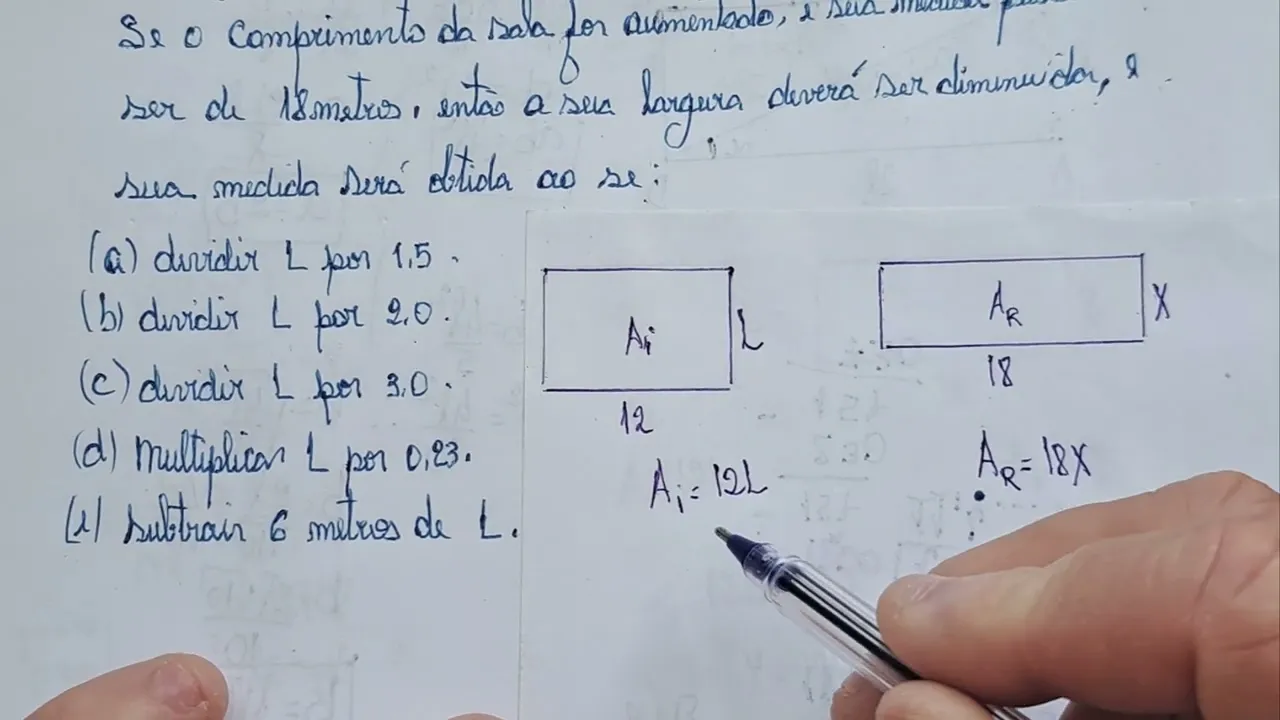 Se o comprimento da sala for aumentado, e sua medida
ser de 18 metros, então a sua largura deverá ser diminuída, e
sua medida será obtida ao se:
(a) dividir L por 1,5.
(b) dividir L por 2,0.
(c) dividir L por 3,0.
(d) Multiplicar L por 0,23.
(e) subtrair 6 metros de L.
Ai
L
12
Ai = 12L
AR
X
18
AR = 18X